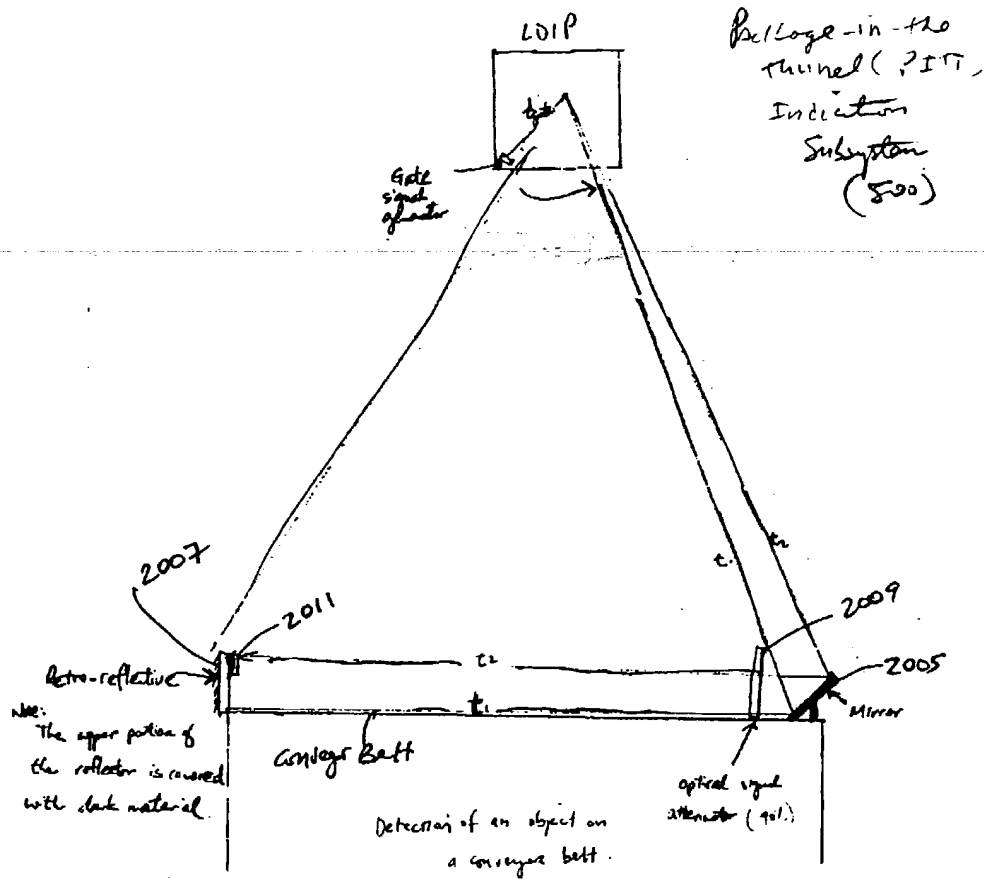 LDIP
Package-in-the
tunnel (PITT,
Indication
Subsystem
(500)
Gate
signal
generator
t1
t2
2007
2011
2009
2005
Retro-reflective
t2
t1
Mirror
Note:
The upper portion of
the reflector is covered
with dark material.
Conveyor Belt
optical signal
attenuator (90%)
Detection of an object on
a conveyor belt.